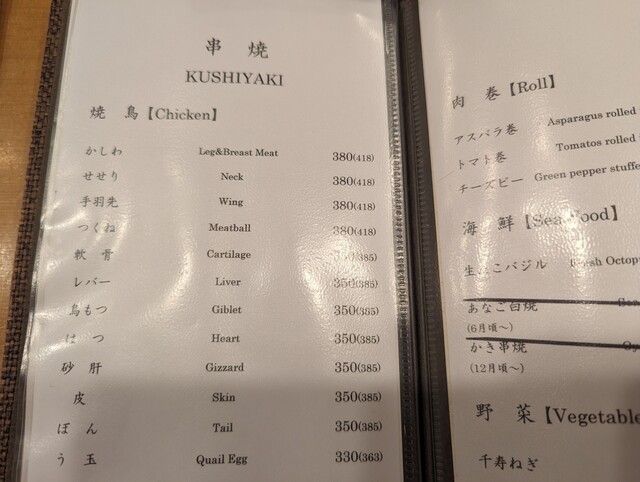 串 焼
KUSHIYAKI
焼 鳥【Chicken】
かしわ Leg&Breast Meat 380(418)
せせり Neck 380(418)
手羽先 Wing 380(418)
つくね Meatball 380(418)
軟 骨 Cartilage 350(385)
レバー Liver 350(385)
鳥もつ Giblet 350(385)
は つ Heart 350(385)
砂 肝 Gizzard 350(385)
皮 Skin 350(385)
ぼ ん Tail 350(385)
う 玉 Quail Egg 330(363)
肉 巻【Roll】
アスパラ巻 Asparagus rolled
トマト巻 Tomatos rolled
チーズピー Green pepper stuffe
海 鮮【Sea Food】
生たこバジル Fresh Octop
あなご白焼
(6月頃～)
かき串焼
(12月頃～)
野 菜【Vegetable
千寿ねぎ